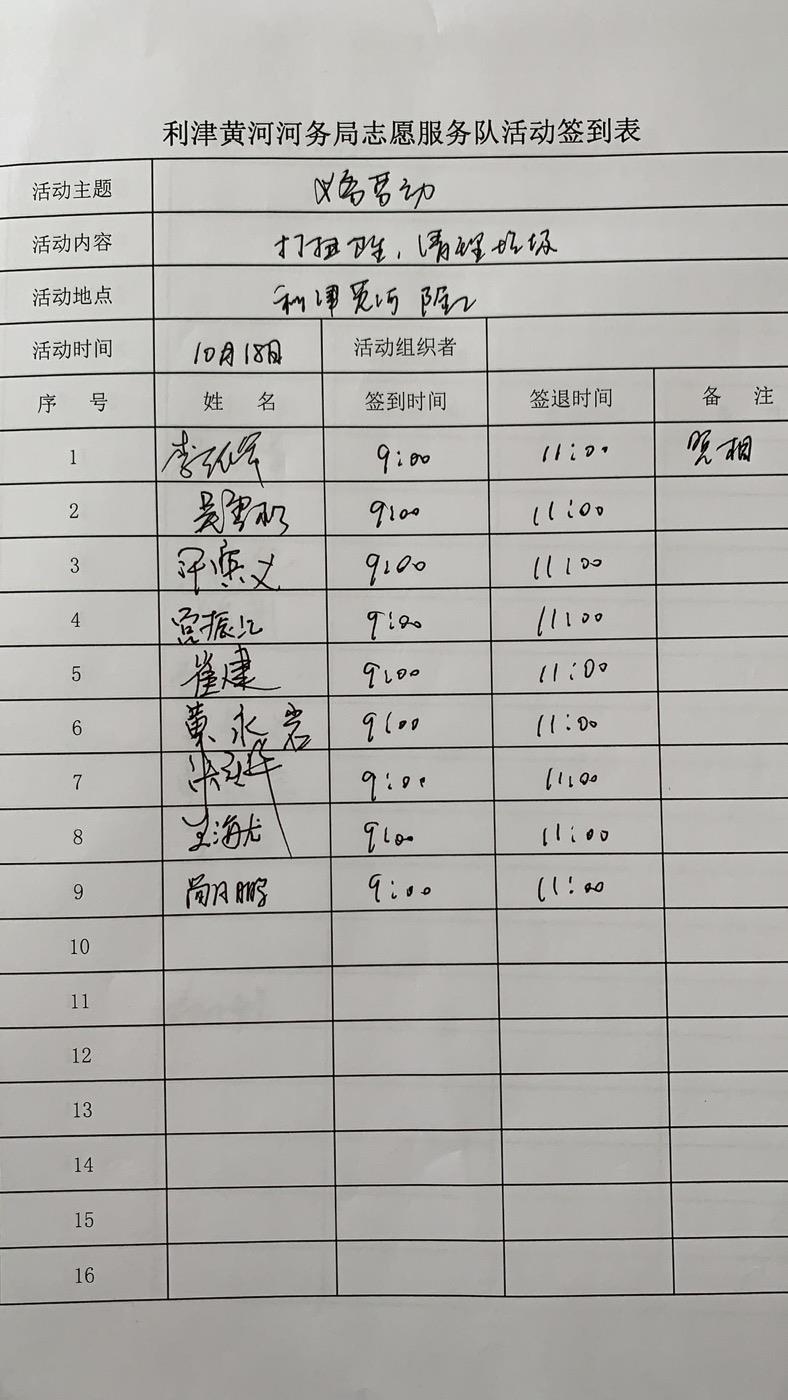 利津黄河河务局志愿服务队活动签到表
活动主题 义务劳动
活动内容 打扫卫生，清理垃圾
活动地点 利津黄河险工
活动时间 10月18日 活动组织者
序 号 姓 名 签到时间 签退时间 备 注
1 9:00 11:00 照相
2 9:00 11:00
3 9:00 11:00
4 宫振江 9:00 11:00
5 崔建 9:00 11:00
6 董永岩 9:00 11:00
7 9:00 11:00
8 王海尤 9:00 11:00
9 尚月鹏 9:00 11:00
10
11
12
13
14
15
16